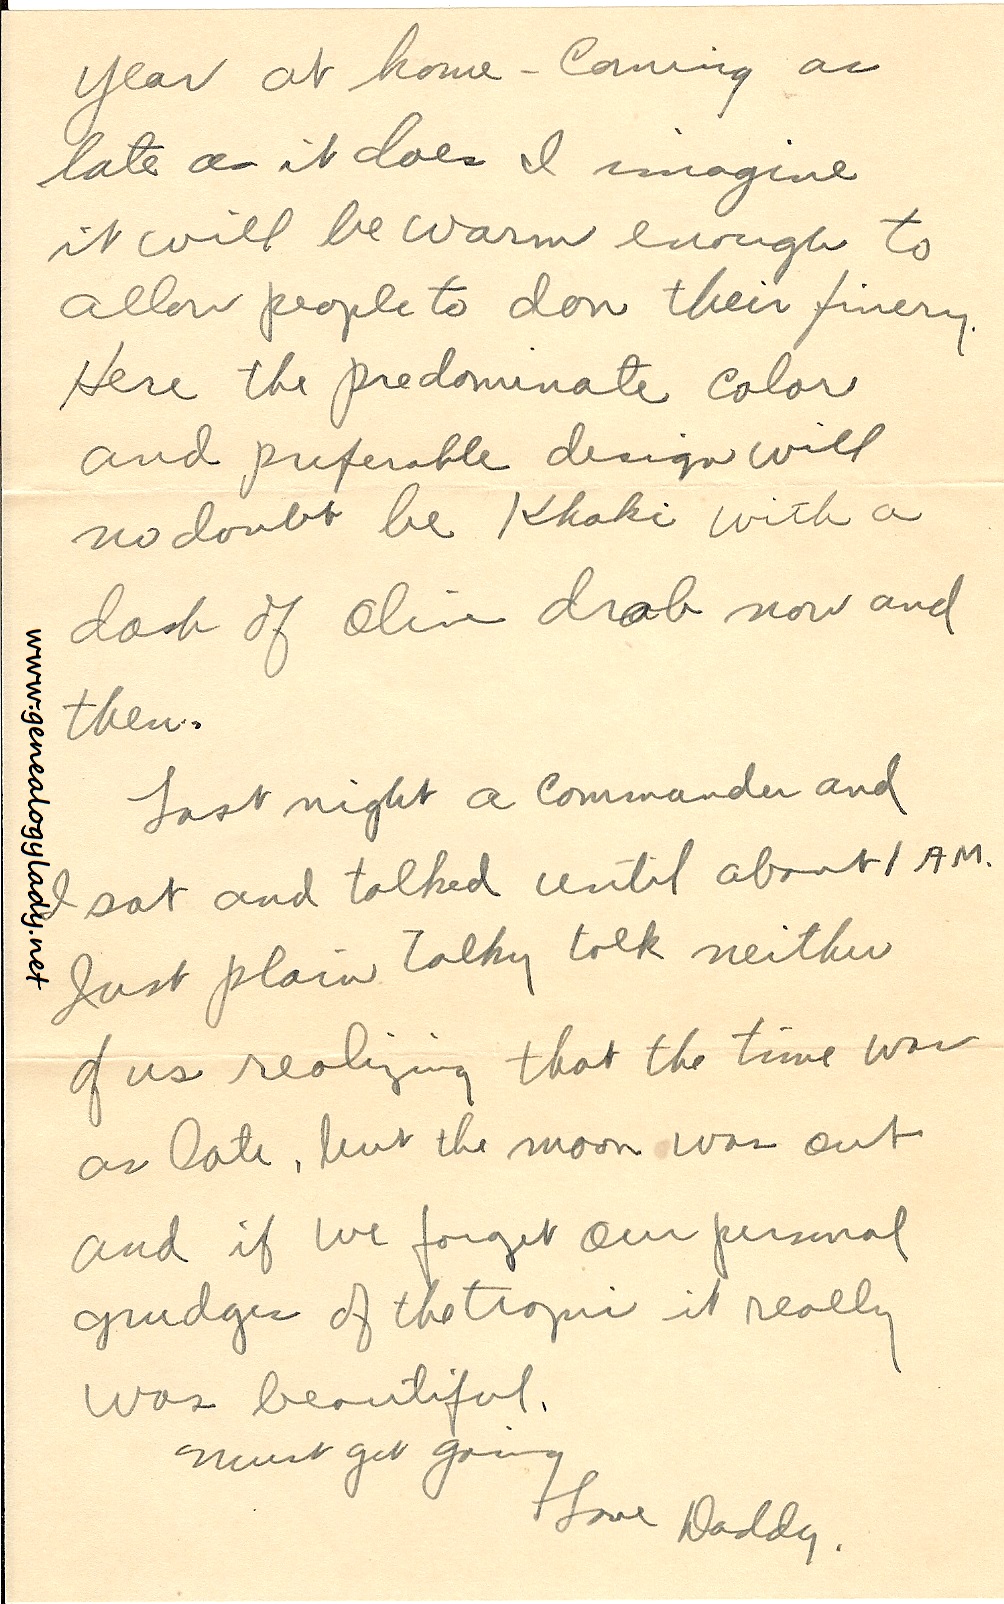 year at home - Coming as
late as it does I imagine
it will be warm enough to
allow people to don their finery.
Here the predominate color
and preferable design will
no doubt be Khaki with a
dash of Olive drab now and
then.
Last night a commander and
I sat and talked until about 1 AM.
Just plain Talky talk neither
of us realizing that the time was
as late, but the moon was out
and if we forget our personal
grudges of the tropics it really
was beautiful.
Must get going
Love Daddy.
www.genealogylady.net